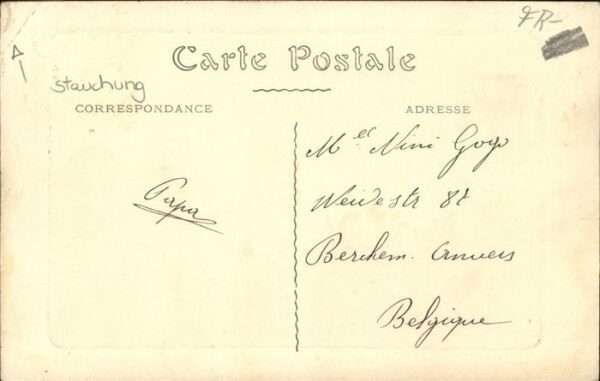 FR-
Carte Postale
Stauchung
CORRESPONDANCE
ADRESSE
Mlle Nini Gogo
Weidestr 81
Berchem. Anvers
Belgique
Papa